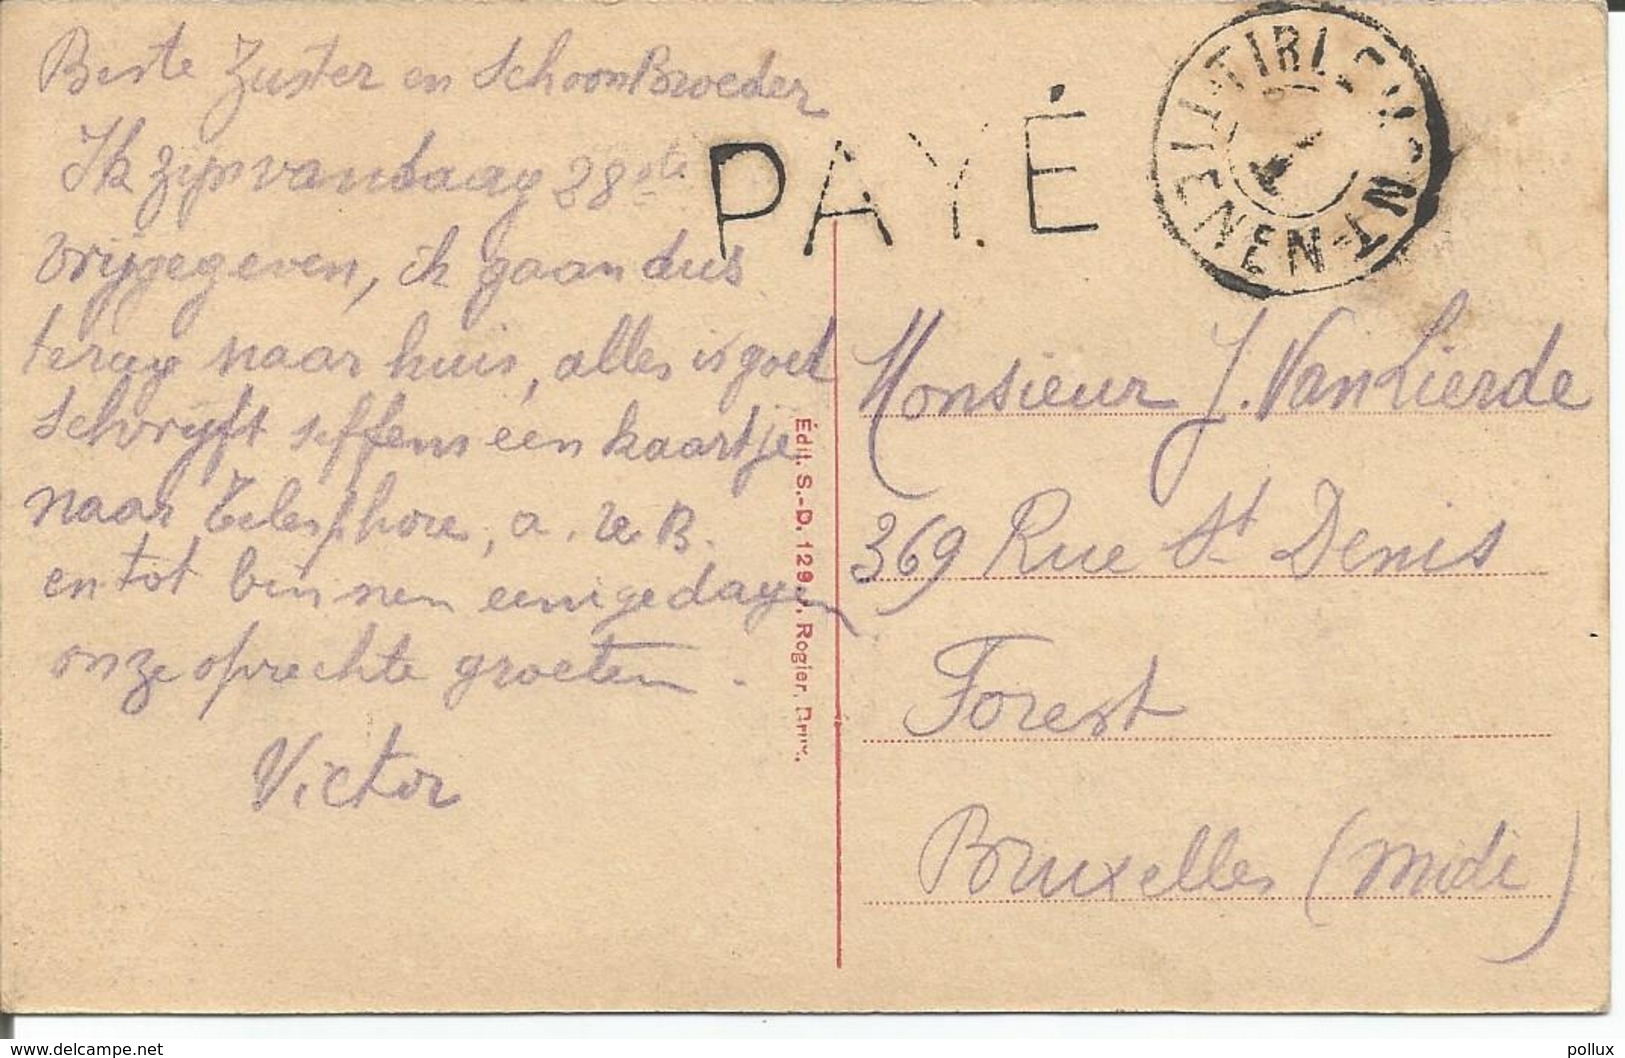 Beste Zuster en SchoonBroeder
Ik zijn vandaag 28ste
vrijgegeven, ik gaan dus
terug naar huis, alles is goed
schrijft seffens een kaartje
naar Telesphore, a. B.
en tot binnen eenige dagen
onze oprechte groeten.
Victor
PAYÉ
TIRLEMONT
TIENEN
Monsieur J. Van Lierde
369 Rue St Denis
Forest
Bruxelles (Midi)
Édit. S.-D. 129, r. Rogier, Brux.
delcampe.net
pollux